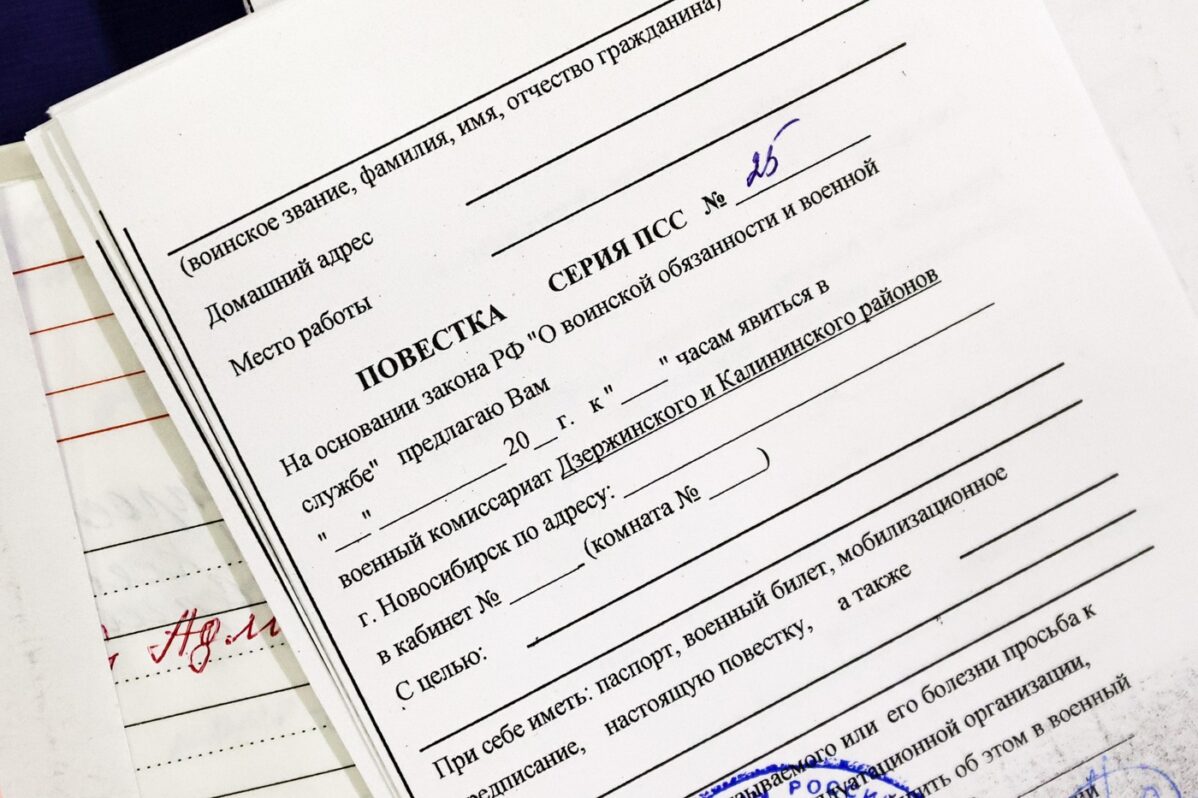 (воинское звание, фамилия, имя, отчество гражданина)
Домашний адрес
Место работы
ПОВЕСТКА СЕРИЯ ПСС № 25
На основании закона РФ "О воинской обязанности и военной
службе" предлагаю Вам
"___"__________20__г. к "____" часам явиться в
военный комиссариат Дзержинского и Калининского районов
г. Новосибирск по адресу:
в кабинет № ______(комната № _____)
С целью:
При себе иметь: паспорт, военный билет, мобилизационное
предписание, настоящую повестку, а также
или его болезни просьба к
организации,
об этом в военный
РОССИ
Адм